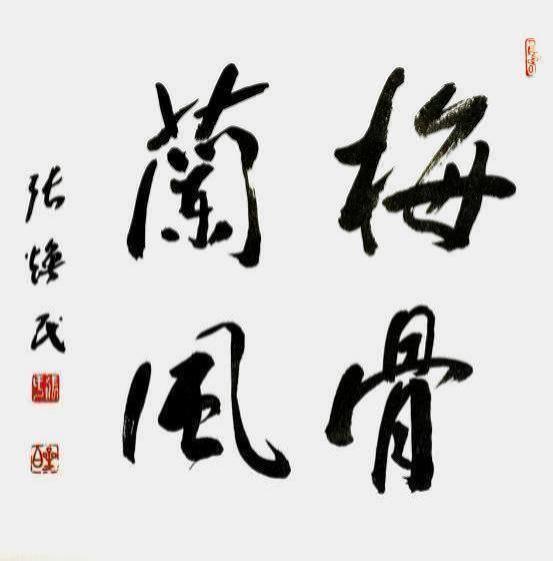 梅骨
蘭風
張煥民